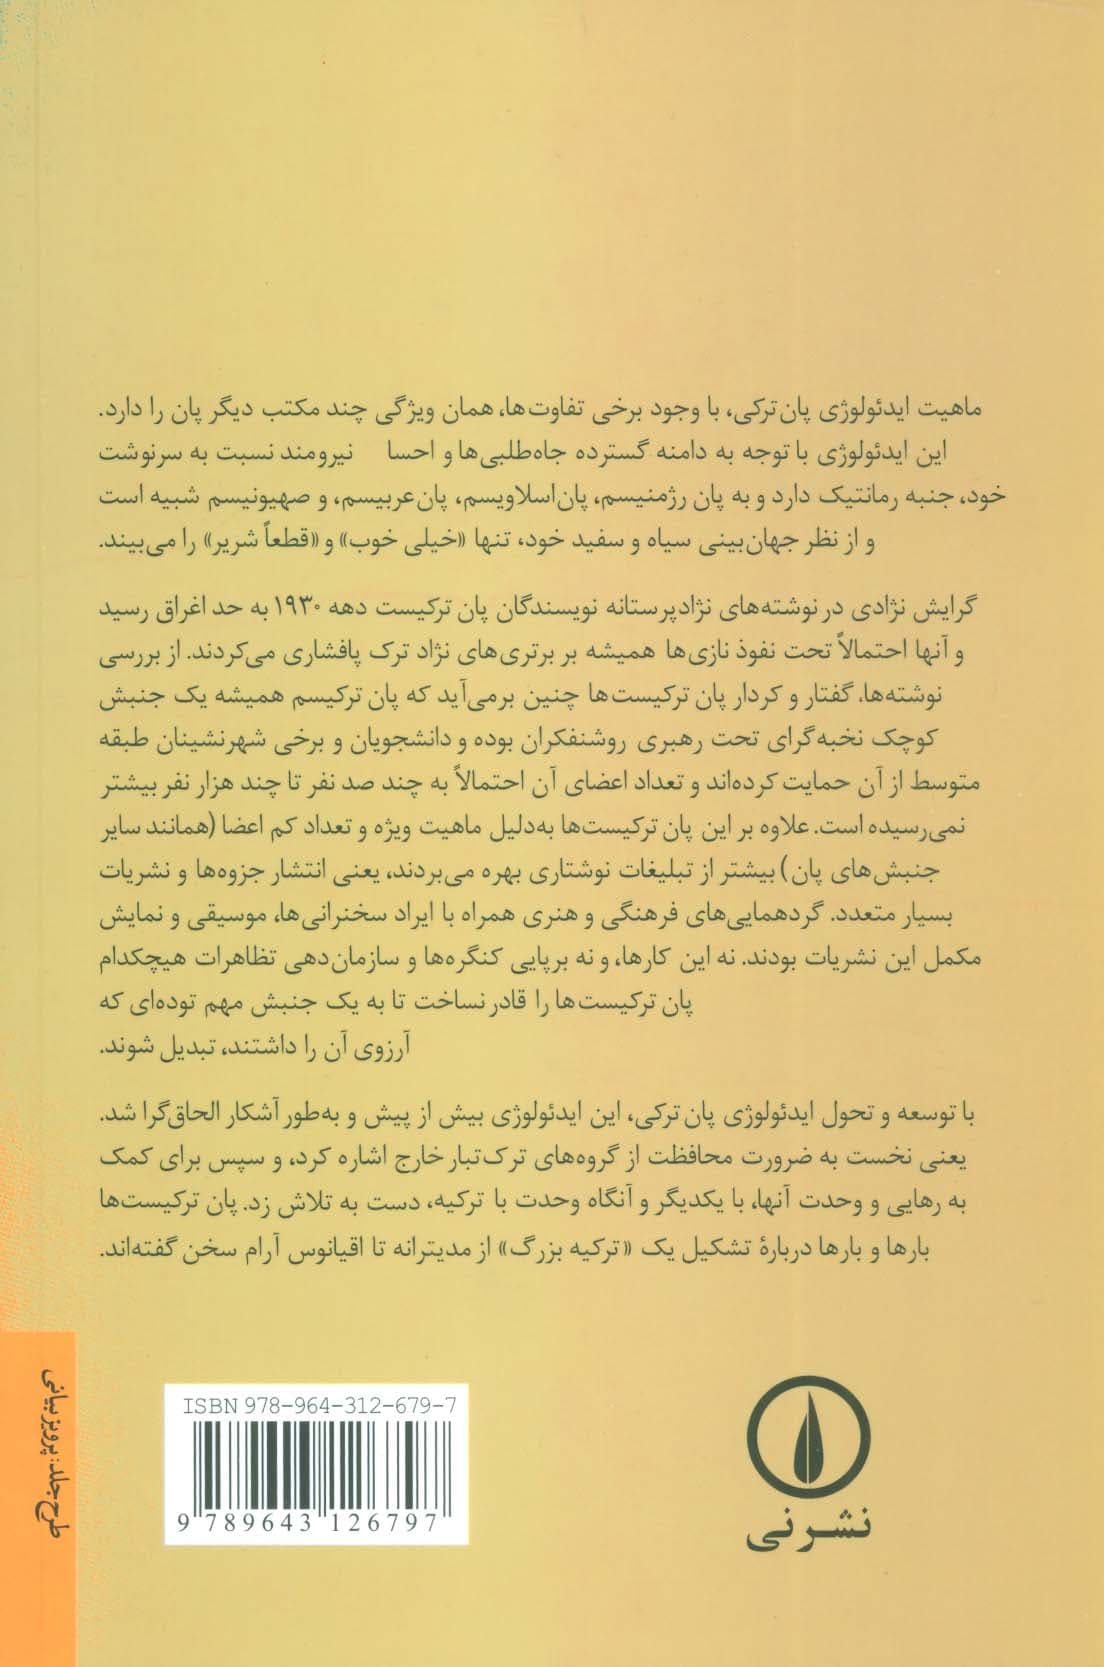 ماهیت ایدئولوژی پان‌ترکی، با وجود برخی تفاوت‌ها، همان ویژگی چند مکتب دیگر پان را دارد.
این ایدئولوژی با توجه به دامنه گسترده جاه‌طلبی‌ها و احسا نیرومند نسبت به سرنوشت
خود، جنبه رمانتیک دارد و به پان رژمنیسم، پان‌اسلاویسم، پان‌عربیسم، و صهیونیسم شبیه است
و از نظر جهان‌بینی سیاه و سفید خود، تنها «خیلی خوب» و «قطعاً شریر» را می‌بیند.
گرایش نژادی در نوشته‌های نژادپرستانه نویسندگان پان ترکیست دهه ۱۹۳۰ به حد اغراق رسید
و آنها احتمالاً تحت نفوذ نازی‌ها همیشه بر برتری‌های نژاد ترک پافشاری می‌کردند. از بررسی
نوشته‌ها، گفتار و کردار پان ترکیست‌ها چنین برمی‌آید که پان ترکیسم همیشه یک جنبش
کوچک نخبه‌گرای تحت رهبری روشنفکران بوده و دانشجویان و برخی شهرنشینان طبقه
متوسط از آن حمایت کرده‌اند و تعداد اعضای آن احتمالاً به چند صد نفر تا چند هزار نفر بیشتر
نمی‌رسیده است. علاوه بر این پان ترکیست‌ها به‌دلیل ماهیت ویژه و تعداد کم اعضا (همانند سایر
جنبش‌های پان) بیشتر از تبلیغات نوشتاری بهره می‌بردند، یعنی انتشار جزوه‌ها و نشریات
بسیار متعدد. گردهمایی‌های فرهنگی و هنری همراه با ایراد سخنرانی‌ها، موسیقی و نمایش
مکمل این نشریات بودند. نه این کارها، و نه برپایی کنگره‌ها و سازمان‌دهی تظاهرات هیچکدام
پان ترکیست‌ها را قادر نساخت تا به یک جنبش مهم توده‌ای که
آرزوی آن را داشتند، تبدیل شوند.
با توسعه و تحول ایدئولوژی پان‌ترکی، این ایدئولوژی بیش از پیش و به‌طور آشکار الحاق‌گرا شد.
یعنی نخست به ضرورت محافظت از گروه‌های ترک‌تبار خارج اشاره کرد، و سپس برای کمک
به رهایی و وحدت آنها، با یکدیگر و آنگاه وحدت با ترکیه، دست به تلاش زد. پان ترکیست‌ها
بارها و بارها دربارهٔ تشکیل یک «ترکیه بزرگ» از مدیترانه تا اقیانوس آرام سخن گفته‌اند.
نشر نی
ISBN 978-964-312-679-7
9 789643 126797
طرح جلد: پرویز بیانی